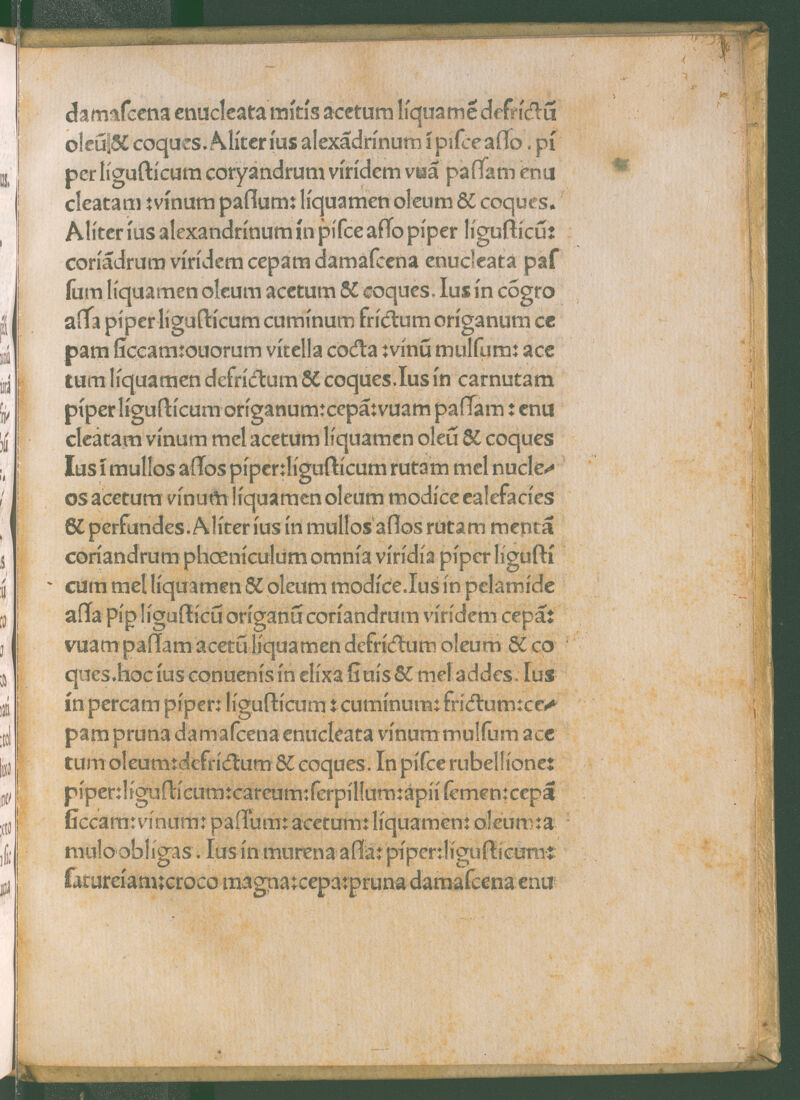 damaſcena enucleata mítís acetum líquamē defríctū
oleū|& coques. Alíter íus alexādrínum ī piſce aſſo. pí
per líguſtícum coryandrum vírídem vuā paſſam enu
cleatam :vínum paſſum: líquamen oleum & coques.
Alíter íus alexandrínum ín píſce aſſo píper líguſtícū:
coríādrum vírídem cepam damaſcena enucleata paſ
ſum líquamen oleum acetum & coques. Ius ín cōgro
aſſa píper líguſtícum cumínum fríctum oríganum ce
pam ſiccam:ouorum vítella cocta :vínū mulſum: ace
tum líquamen defríctum & coques.Ius ín carnutam
píper líguſtícum oríganum:cepā:vuam paſſam : enu
cleatam vínum mel acetum líquamen oleū & coques
Ius ī mullos aſſos píper:líguſtícum rutam mel nucle⸗
os acetum vínum líquamen oleum modíce ealefacíes
& perfundes. Alíter íus ín mullos aſſos rutam mentā
coríandrum phœnículum omnía vírídía píper líguſtí
cum mel líquamen & oleum modíce.Ius ín pelamíde
aſſa píp líguſtícū oríganū coríandrum vírídem cepā:
vuam paſſam acetū líquamen defríctum oleum & co
ques.hoc íus conuenís ín elíxa ſi uís & mel addes. Ius
ín percam píper: líguſtícum : cumínum: fríctum:ce⸗
pam pruna damaſcena enucleata vínum mulſum ace
tum oleum:defríctum & coques. In píſce rubellíone:
píper:líguſtícum:careum:ſerpíllum:apíí ſemen:cepā
ſiccam:vínum: paſſum: acetum: líquamen: oleum:a
mulo oblígas. Ius ín murena aſſa: píper:líguſtícum:
ſatureíam:croco magna:cepa:pruna damaſcena enu